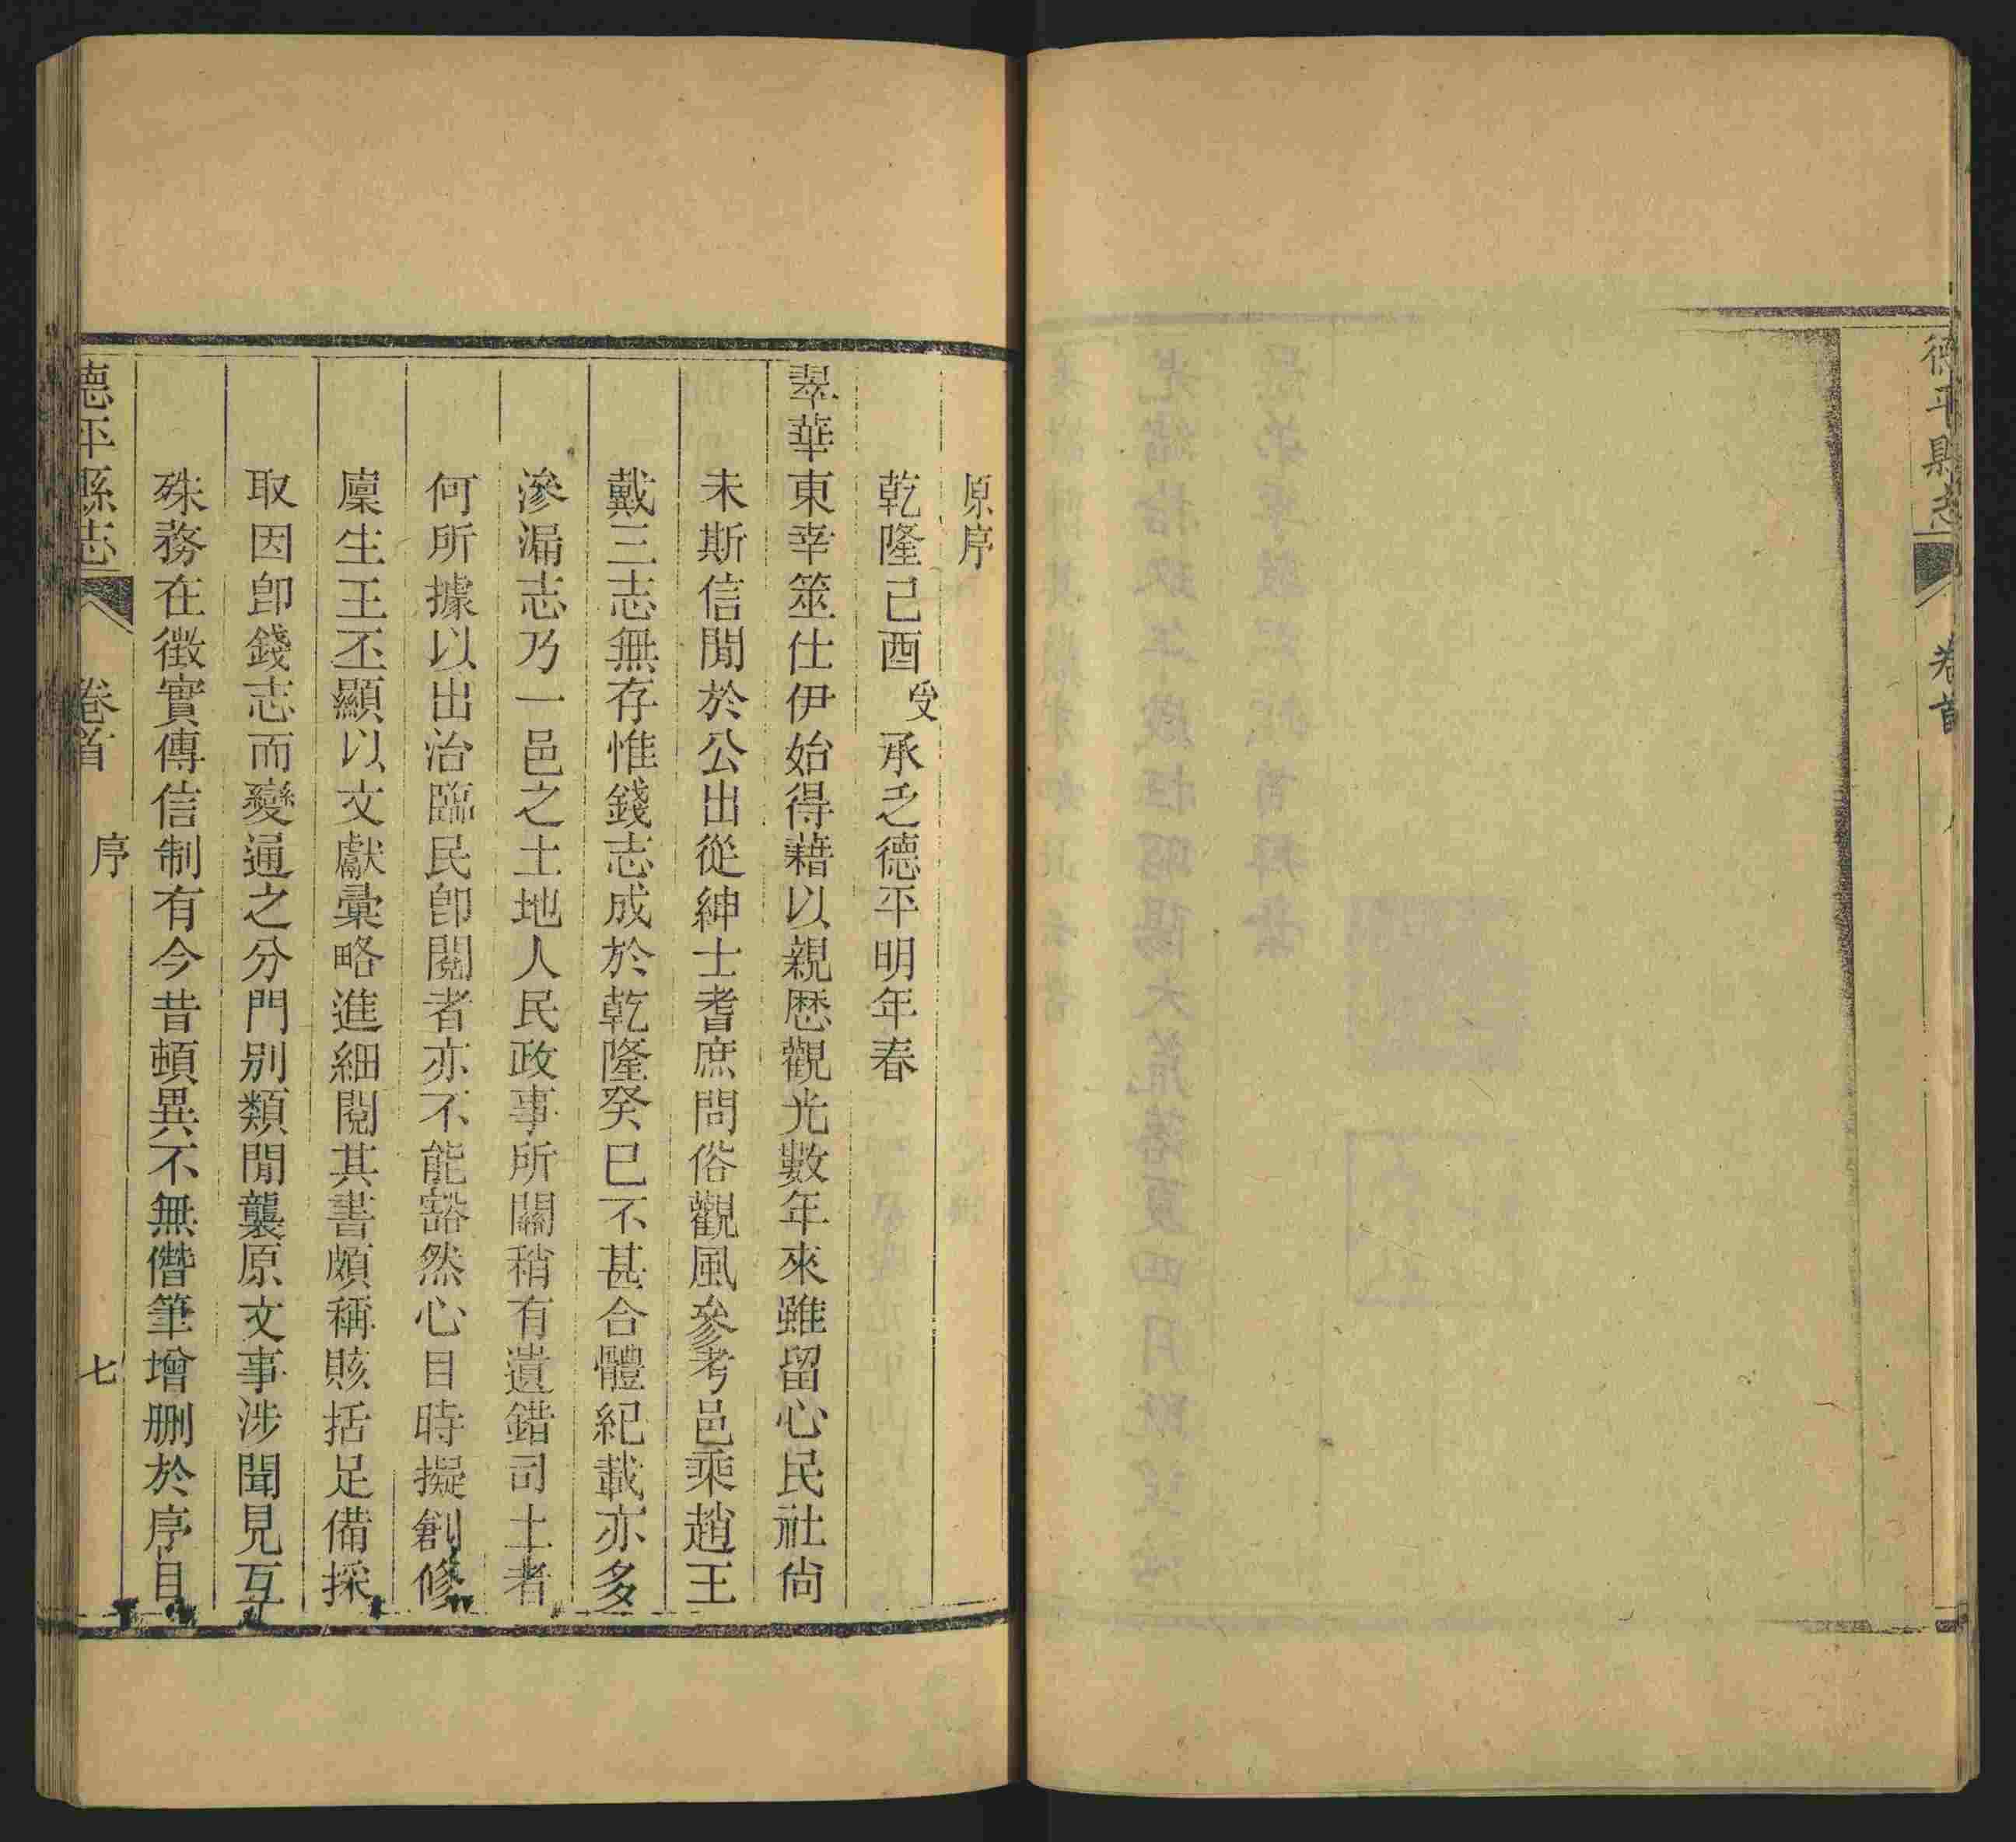 德平縣志
卷首
原序
乾隆己酉受承乏德平明年春
翠華東幸筮仕伊始得藉以親歷觀光數年來雖留心民社尙
未斯信閒於公出從紳士耆庶問俗觀風參考邑乘趙王
戴三志無存惟錢志成於乾隆癸巳不甚合體紀載亦多
滲漏志乃一邑之土地人民政事所關稍有遺錯司土者
何所據以出治臨民卽閱者亦不能豁然心目時擬創修
廩生王丕顯以文獻彙略進細閱其書頗稱賅括足備採
取因卽錢志而變通之分門別類閒襲原文事涉聞見互
殊務在徵實傳信制有今昔頓異不無僭筆增刪於序目
德平縣志
卷首
序
七